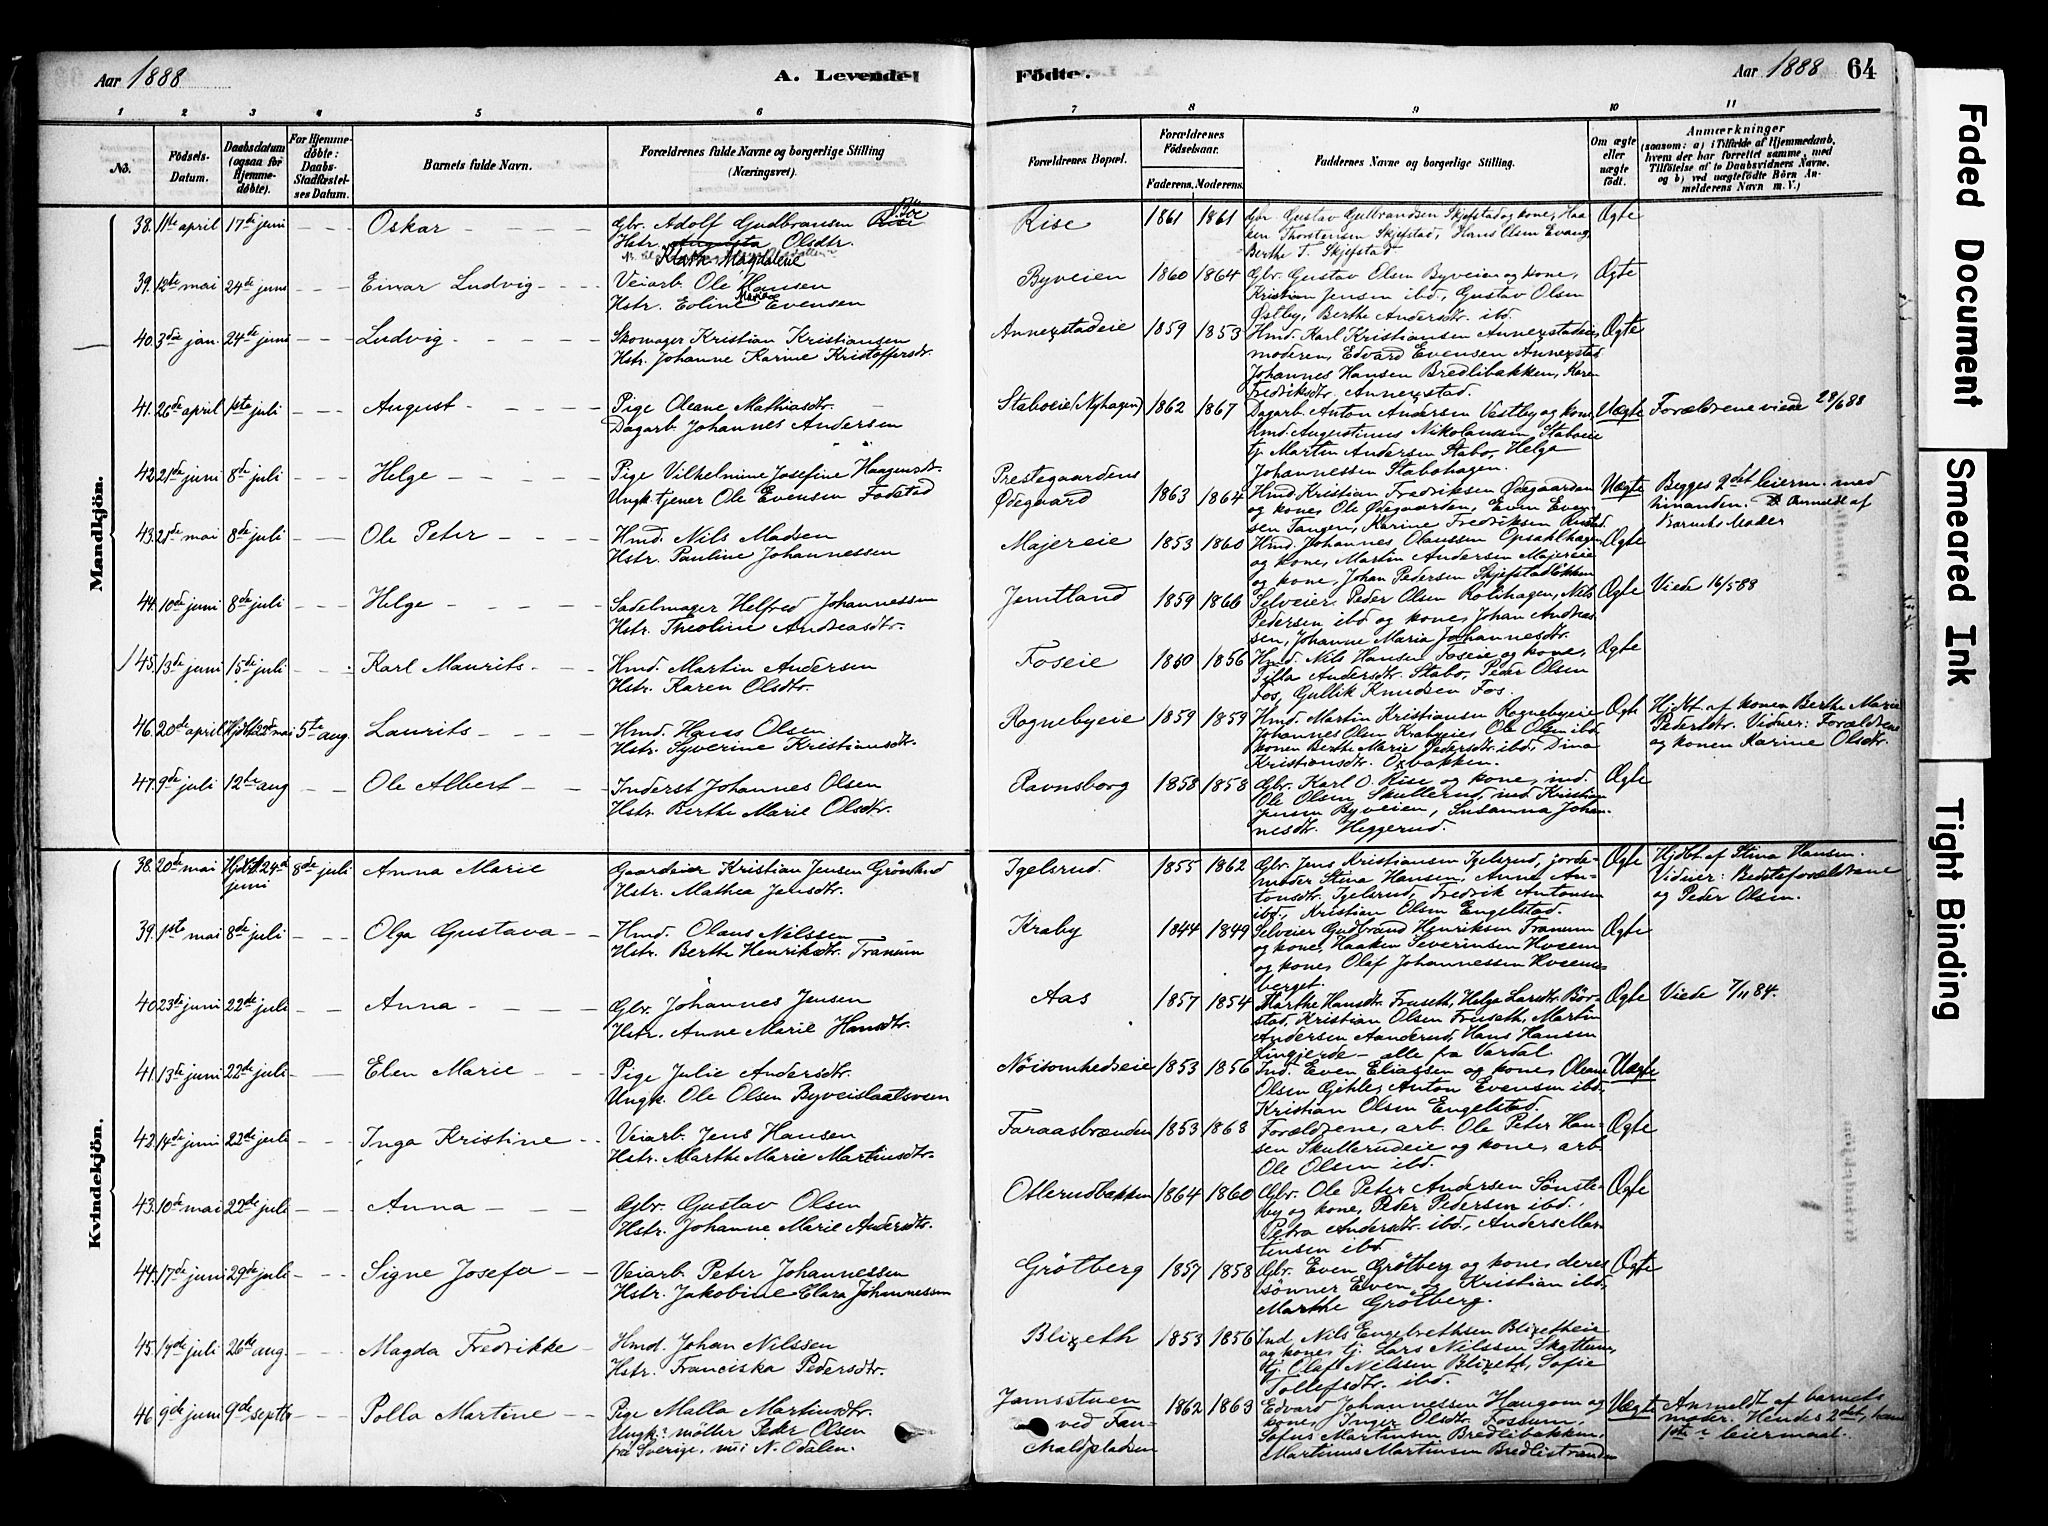 Aar 1888
A. Levendet
Födte.
Aar 1888 64
1 2 3 4 5 6 7 8 9 10 11
No. Födsels-Datum. Daabsdatum (ogsaa for Hjemmedøbte). For Hjemmedøbte: Daabs-Stadfæstelses Datum. Barnets fulde Navn. Forældrenes fulde Navne og borgerlige Stilling (Næringsvei). Forældrenes Bopæl. Forældrenes Fødselsaar. Faderens. Moderens. Faddernes Navne og borgerlige Stilling. Om ægte eller uægte født. Anmærkninger (saasom: a) i Tilfælde af Hjemmedaab, hvem der har forrettet samme, med Tilføielse af to Daabsvidners Navne, og b) ved uægtefödte Börn Anmelderens Navn m. V.)
Mandkjön.
38. 11te april 17de juni Oskar Gbr. Adolf Gudbransen Rise
Hstr. Augusta Olsdtr.
Klara Magdalene
Rise 1861 1861 Gbr. Gustav Gulbrandsen Skjefstad og kone, Haa-
ken Thorstensen Skjefstad, Hans Olsen Evang,
Berthe T. Skjefstad. Ægte
39. 12te mai 24de juni Einar Ludvig Veiarb. Ole Hansen
Hstr. Eoline Marie Evensen
Byveien 1860 1864 Gbr. Gustav Olsen Byveien og kone,
Kristian Jensen ibd., Gustav Olsen
Østby, Berthe Andersdtr. ibd. Ægte
40. 3die jan. 24de juni Ludvig Skomager Kristian Kristiansen
Hstr. Johanne Karine Kristoffersdtr.
Annexstadeie 1859 1853 Hmd. Karl Kristiansen Annexstadeie,
moderen, Edvard Evensen Annexstad,
Johannes Hansen Bredlibakken, Karen
Fredriksdtr. Annexstad. Ægte
41. 26de april 1ste juli August Pige Oleane Mathiasdtr.
Dagarb. Johannes Andersen
Staboeie (Nyhagen) 1862 1867 Dagarb. Anton Andersen Vestby og kone,
Hmd. Augustinus Nikolaussen Staboeie
tj. Martin Andersen Stabo, Helga
Johannessen Stabohagen. Uægte Forældrene viede 28/6 88
42. 21de juni 8de juli Helge Pige Vilhelmine Josefine Haagensdtr.
Ungk. tjener Ole Evensen Fodstad
Prestegaardens
Ødegaard 1863 1864 Hmd. Kristian Fredriksen Ødegaarden
og kone, Ole Ødegaarden, Even Even-
sen Tangen, Karine Fredriksen Rustad. Uægte Begges 2det leierm. med
hinanden. Anmeldt af
Barnets Moder
43. 21de mai 8de juli Ole Peter Hmd. Nils Madsen
Hstr. Pauline Johannessen
Majereie 1853 1860 Hmd. Johannes Olaussen Opsahlhagen
og kone, Martin Andersen Majereie
og kone, Johan Pedersen Skjefstadløkken Ægte
44. 10de juni 8de juli Helge Sadelmager Helfred Johannessen
Hstr. Theoline Andreasdtr.
Jemtland 1859 1866 Selveier Peder Olsen Rolihagen, Nils
Pedersen ibd. og kone, Johan Andreas-
sen, Johanne Maria Johannesdtr. Ægte Viede 16/5 88
45. 13de juni 15de juli Karl Maurits Hmd. Martin Andersen
Hstr. Karen Olsdtr.
Foseie 1850 1856 Hmd. Nils Hansen Foseie og kone,
Tilla Andersdtr. Stabo, Peder Olsen
Fos, Gullik Knudsen Fos. Ægte
46. 20de april Hjdbt 22de mai 5te aug. Laurits Hmd. Hans Olsen
Hstr. Syverine Kristiansdtr.
Rognebyeie 1859 1859 Hmd. Martin Kristiansen Rognebyeie
Johannes Olsen Krabyeie, Ole Olsen ibd.
konen Berthe Marie Pedersdtr. ibd., Dina
Kristiansdtr. Oxbakken. Ægte Hjdbt. af konen Berthe Marie
Pedersdtr. Vidner: Forældrene
og konen Karine Olsdtr.
47. 9de juli 12te aug Ole Albert Inderst Johannes Olsen
Hstr. Berthe Marie Olsdtr.
Ravnsborg 1858 1858 Gbr. Karl O. Rise og kone, ind.
Ole Olsen Skullerud, ind. Kristian
Jensen Byveien, Susanna Johan-
nesdtr. Heggerud. Ægte
Kvindekjön.
38. 20de mai Hjdbt 24de juni 8de juli Anna Marie Gaardeier Kristian Jensen Grönlund
Hstr. Mathea Jensdtr.
Igelsrud. 1855 1862 Gbr. Jens Kristiansen Igelsrud, jorde-
moder Stina Hansen, Anne An-
tonsdtr. Igelsrud, Fredrik Antonsen
ibd., Kristian Olsen Engelstad. Ægte Hjdbt af Stina Hansen.
Vidner: Bedsteforældrene
og Peder Olsen.
39. 1ste mai 8de juli Olga Gustava Hmd. Olaus Nilssen
Hstr. Berthe Henriksdtr. Tranum
Kraby 1844 1849 Selveier Gudbrand Henriksen Tranum
og kone, Haaken Severinsen Hvesem
og kone, Olaf Johannessen Hvesems-
berget. Ægte
40. 23de juni 22de juli Anna Gbr. Johannes Jensen
Hstr. Anne Marie Hansdtr.
Aas 1857 1854 Marthe Hansdtr. Fruseth, Helga Larsdtr. Bör-
stad, Kristian Olsen Fruseth, Martin
Andersen Aanderud, Hans Hansen
Lingjerde – alle fra Vardal Ægte Viede 7/11 84.
41. 13de juni 22de juli Elen Marie Pige Julie Andersdtr.
Ungk. Ole Olsen Byveislaatsveen
Nöisomhedseie 1853 1856 Ind. Even Eliassen og kone, Oleane
Olsen Gihle, Anton Evensen ibd.
Kristian Olsen Engelstad. Uægte
42. 14de juni 22de juli Inga Kristine Veiarb. Jens Hansen
Hstr. Marthe Marie Martinsdtr.
Faraasbrænden 1853 1868 Forældrene, arb. Ole Peter Han-
sen Skullerudeie og kone, arb.
Ole Olsen ibd. Ægte
43. 10de mai 22de juli Anna Gbr. Gustav Olsen
Hstr. Johanne Marie Andersdtr.
Otlerudbakken 1864 1860 Gbr. Ole Peter Andersen Sönste-
by og kone, Peder Pedersen ibd.,
Petra Andersdtr. ibd., Anders Mar-
tinsen ibd. Ægte
44. 17de juni 29de juli Signe Josefa Veiarb. Peter Johannessen
Hstr. Jakobine Clara Johannessen
Grötberg 1857 1858 Gbr. Even Grötberg og kone, deres
sönner Even og Kristian ibd.,
Marthe Grötberg. Ægte
45. 14de juli 26de aug. Magda Fredrikke Hmd. Johan Nilssen
Hstr. Franciska Pedersdtr.
Blixeth 1853 1856 Ind. Nils Engebrethsen Blixetheie
og kone, tj. Lars Nilssen Skattum,
tj. Olaf Nilssen Blixeth, Sofie
Tollefsdtr. ibd.
46 9de juni 9de septbr Polla Martine Pige Malla Martinsdtr.
Ungk. möller Peder Olsen
fra Sverige, nu i N. Odalen.
Jamsstuen
ved Fan-
Maldpladsen 1862 1863 Edvard Johannessen Haugom og
kone, Inger Olsdtr. Fossum,
Sofus Martinsen Bredlibakken,
Martinus Martinsen Bredlistranden Uægte Anmeldt af barnets
moder. Hendes 2det, hans
1ste leiermaal.
Faded Document
Smeared Ink
Tight Binding